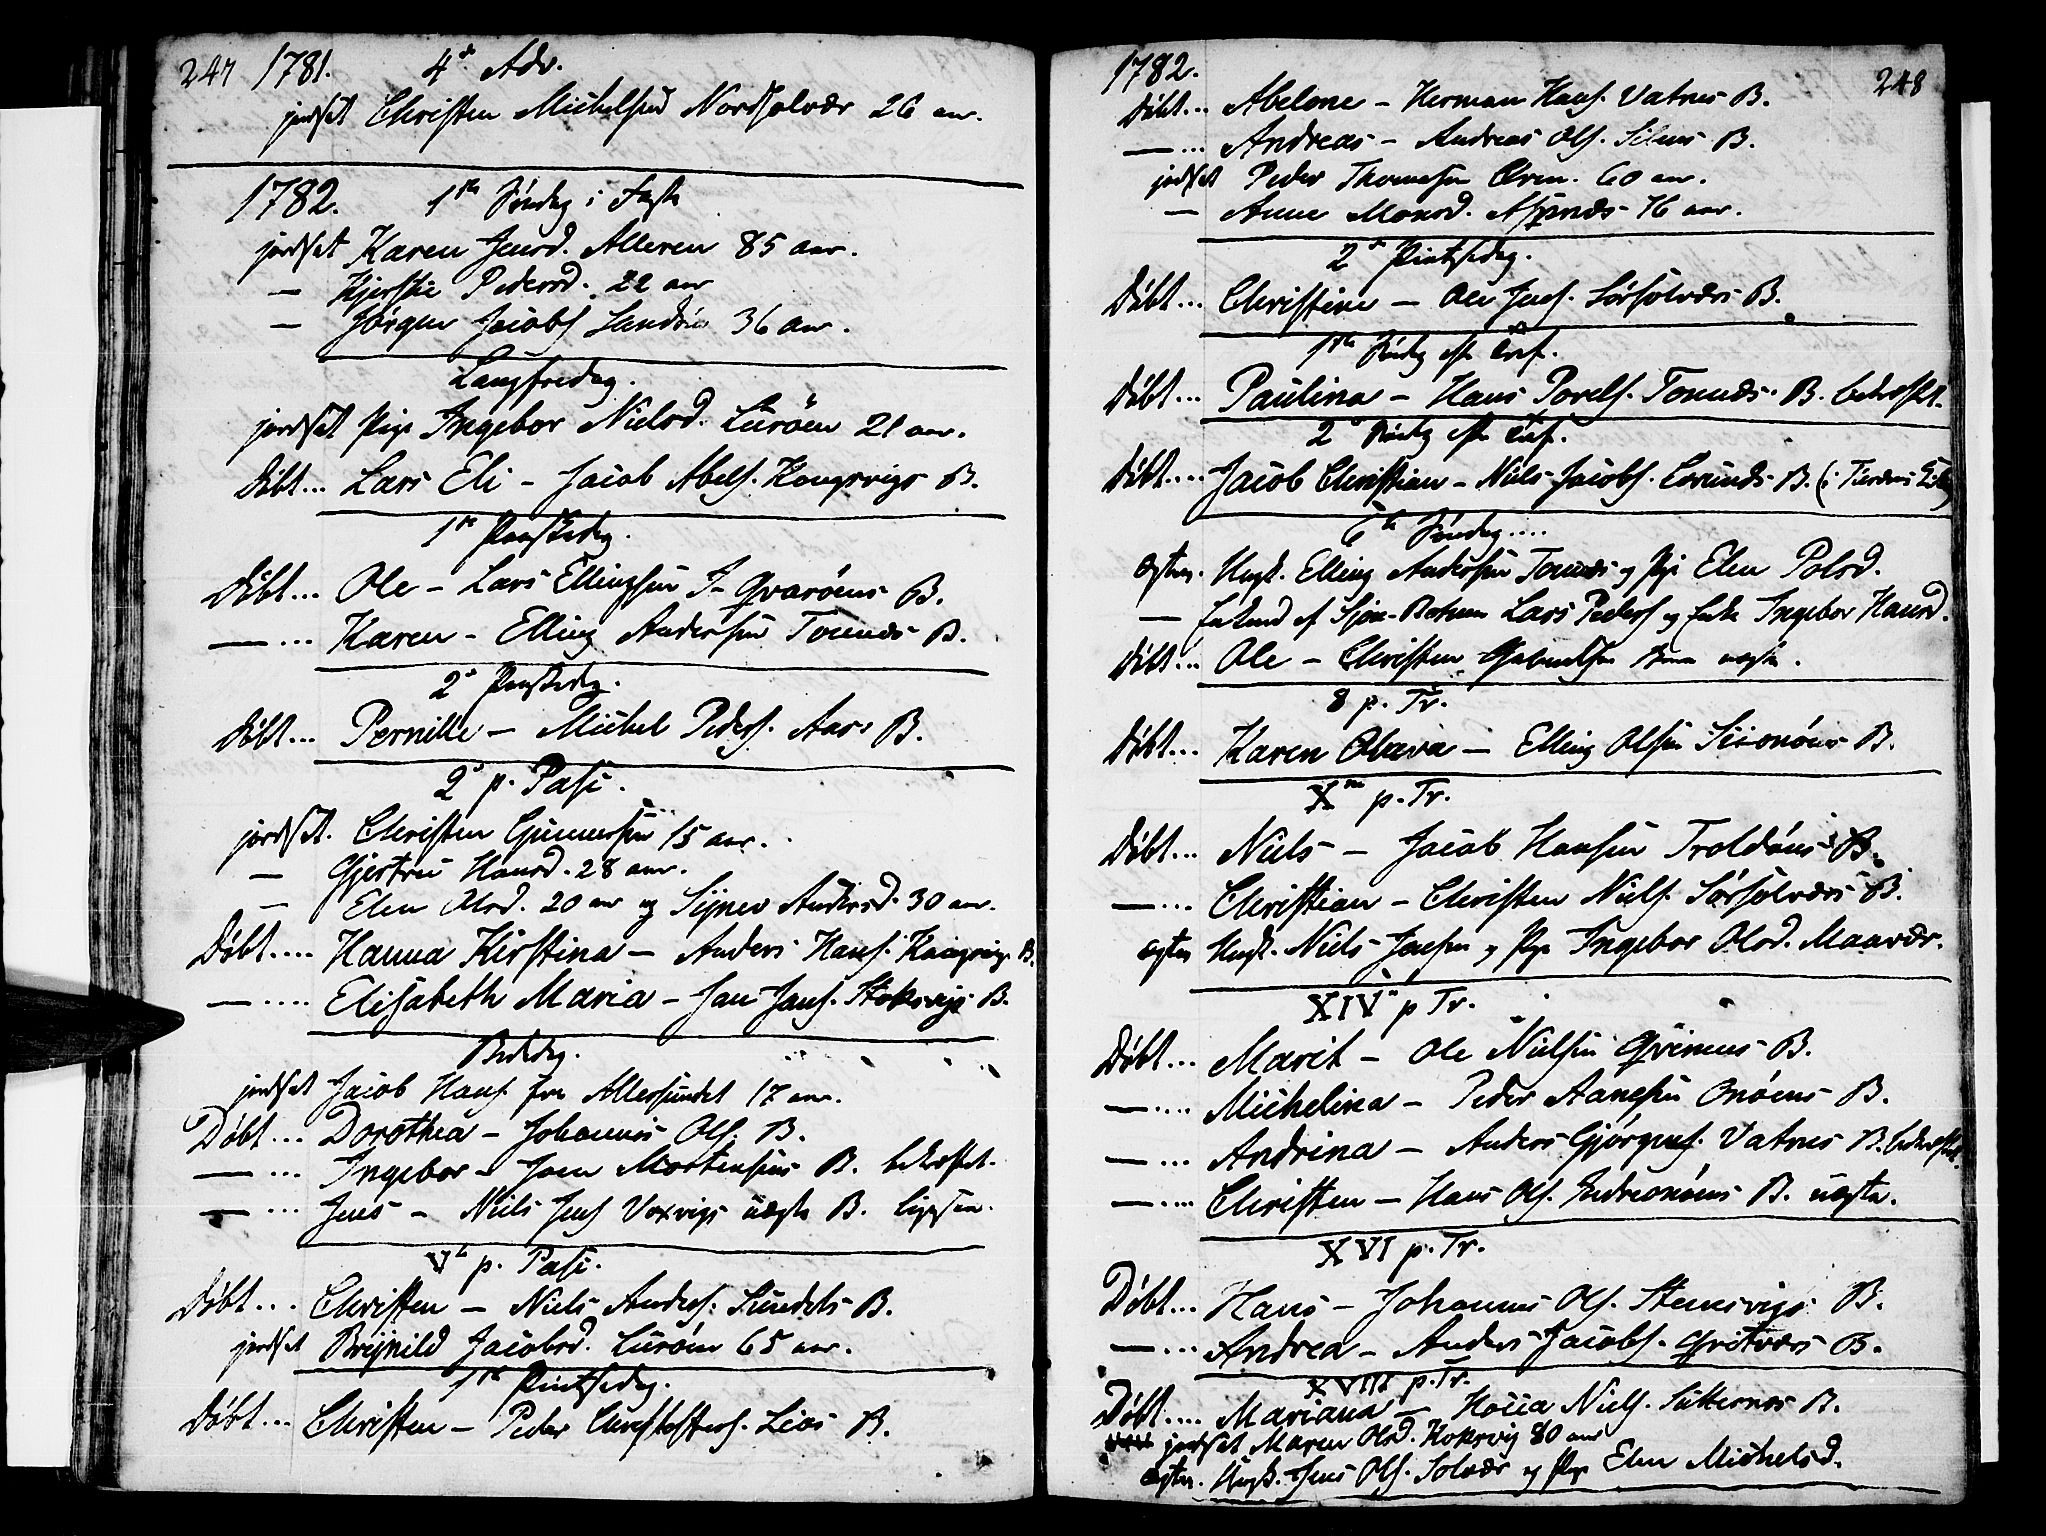 247 1781. 4d Adv.
jordset Christen Michelsen Nordsolvær 26 aar.
1782. 1ste Søndag i Faste
jordset Karen Jensd. Alleren 85 aar.
— Kjerstie Pedersd. 22 aar
— Jørgen Jacobs Sandøen 36 aar.
Langfredag.
jordset Pige Ingebor Nielsd. Lurøen 21 aar.
Døbt... Lars Eli - Jacob Abels. Kongsvigs B.
1ste Paaskedag.
Døbt... Ole - Lars Ellingsen I- Qvarøens B.
—... Karen - Elling Andersen Tonnes B.
2d Paaskedag.
Døbt... Pernille - Michel Peders. Aars B.
2d p. Pasc.
jordset. Christen Gunnersen 15 aar.
— Gjertru Hansd. 28 aar.
— Elen Olsd. 20 aar og Sijnev Andersd. 30 aar.
Døbt.... Hanna Kirstina - Anders Hans. Kongsvigs B.
—.... Elisabeth Maria - Jan Jans. Stoksvigs B.
Bededag.
jordset Jacob Hans fra Allersundet 17 aar.
Døbt... Dorothea - Johannes Ols. B.
—... Ingebor - Joen Mortensens B.
—... Jens - Niels Jens Voxvigs uægte B.
V p. Pasc.
Døbt... Christen - Niels Anders. Sundets B.
jordset Brynild Jacobsd. Lurøen 65 aar.
1ste Pintsedag.
Døbt... Christen - Peder Christophers. Lios B.
1782. 248
Døbt... Abelone - Herman Hans. Vatnes B.
—... Andreas - Andreas Ols. B.
jordset Peder Thomesen 60 aar.
— Anne Monsd. 76 aar.
2d Pintsedag.
Døbt... Christine - Ole Jens. Sørsolværs B.
1ste Søndag eft. Tref.
Døbt... Paulina - Hans Povels. Tonnes B.
2 Søndag eft. Tref.
Døbt.... Jacob Christian - Niels Jacobs. Lovunds B.
6te Søndag....
Ægtev. Ungk. Elling Andersen Tonnes og Pige Elen Polsd.
— Enkemd af Sjon-Botnen Lars Peders og Enke Ingebor Hansd.
Døbt... Ole - Christen Gabrielsen uægte.
8 p. Tr.
Døbt... Karen Olava - Elling Olsen B.
X p. Tr.
Døbt... Niels - Jacob Hansen Troldøens B.
—... Christian - Christen Niels. Sørsolværs B.
Ægtev Ungk. Niels Jansen og Pige Ingebor Olsd. Maavær.
XIV p Tr.
Døbt... Marit - Ole Nielsen B.
—.... Michelina - Peder Aanesen Onøens B.
—... Andrina - Anders Gjørgens. Vatnes B.
—.... Christen - Hans Ols. Indreonøens B. uægte.
XVI p. Tr.
Døbt... Hans - Johannes Ols. Stensvigs B.
—... Andrea - Anders Jacobs. Qvitværs B.
XVIII p. Tr.
Døbt.... Mariana - Niels. B.
jordset Maren Olsd. Koksvig 80 aar
Ægtev. Ungk. Jens Ols. Solvær og Pige Elen Michelsd.